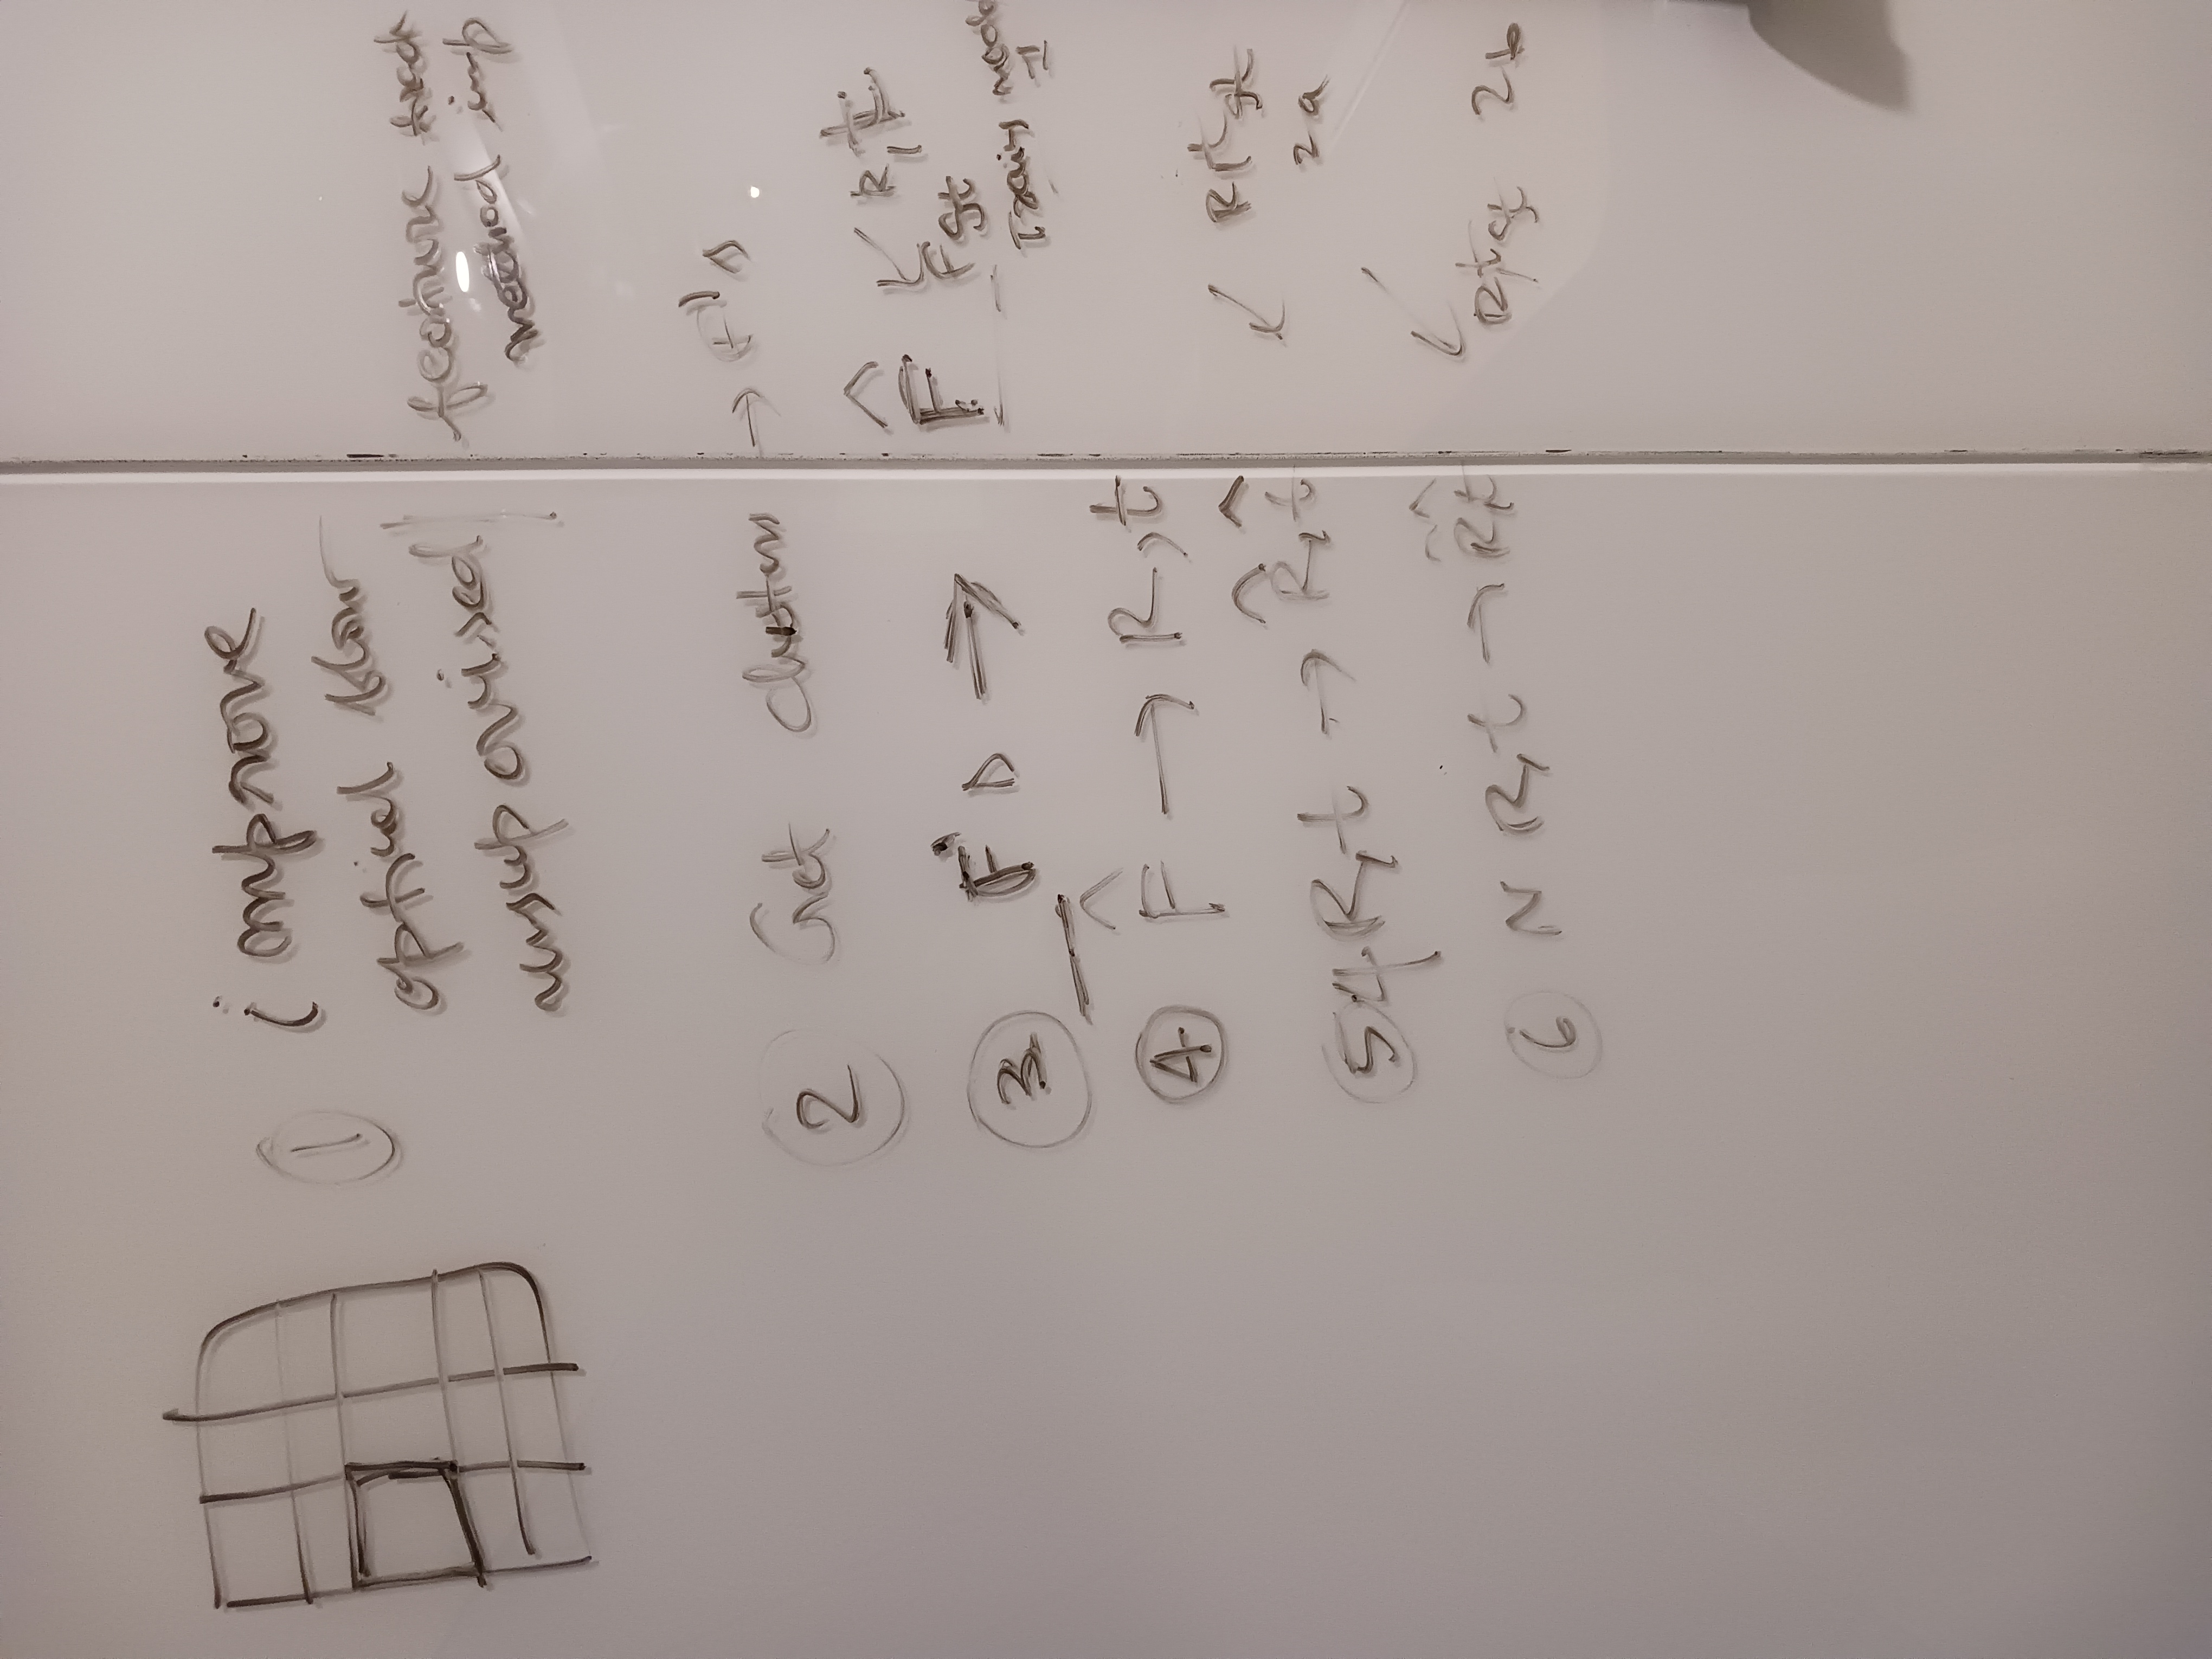 ① improve
optical flow
unsupervised | feature track
method imp
② Get clusters → F's
③ F's → F̂ ↙ R, t
F gt
Train model
1
④ F̂ → R, t
⑤ 4 R, t → R̂, t̂ ↙ R, t gt
2a
⑥ N R, t → R̂, t̂ ↙
R, t gt 2b